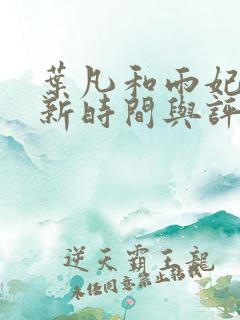 葉凡和雨妃
新時間與評
逆天霸王龍
未任同意禁止轉載